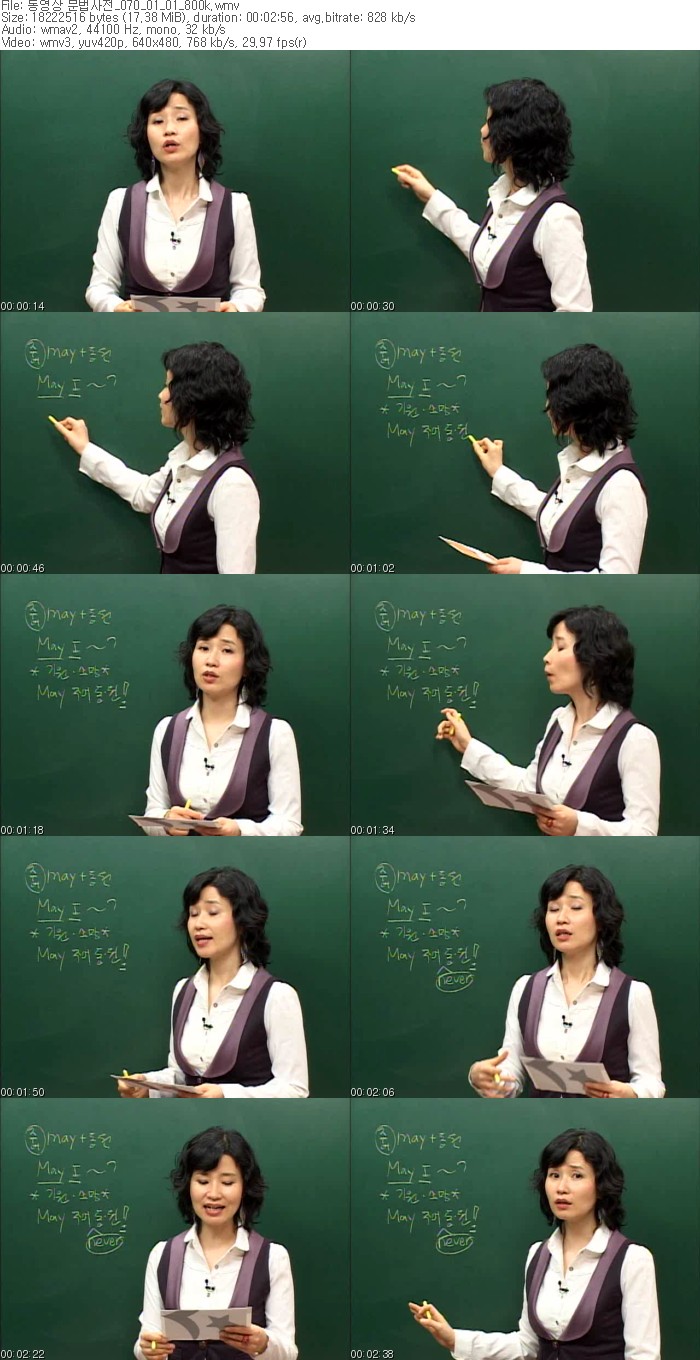 File: 동영상 문법사전_070_01_01_800k.wmv
Size: 18222516 bytes (17,38 MiB), duration: 00:02:56, avg.bitrate: 828 kb/s
Audio: wmav2, 44100 Hz, mono, 32 kb/s
Video: wmv3, yuv420p, 640x480, 768 kb/s, 29,97 fps(r)
00:00:14
00:00:30
may + 동원
May I ~?
00:00:46
may + 동원
May I ~?
* 기원·소망문
May 주어 동·원
00:01:02
may + 동원
May I ~?
* 기원·소망문
May 주어 동·원!
00:01:18
may + 동원
May I ~?
* 기원·소망문
May 주어 동·원!
00:01:34
may + 동원
May I ~?
* 기원·소망문
May 주어 동·원!
00:01:50
may + 동원
May I ~?
* 기원·소망문
May 주어 동·원!
never
00:02:06
may + 동원
May I ~?
* 기원·소망문
May 주어 동·원!
never
00:02:22
may + 동원
May I ~?
* 기원·소망문
May 주어 동·원!
never
00:02:38